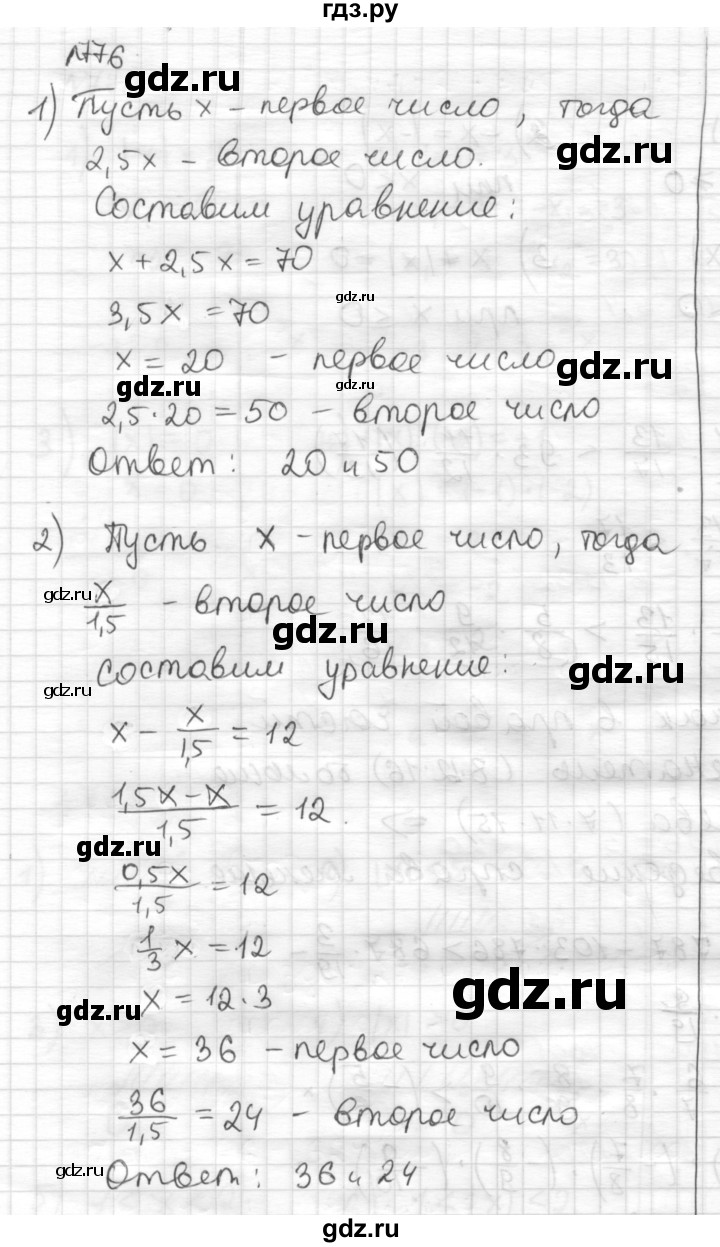 гдз.ру
№776
gdz.ru
1) Пусть x – первое число, тогда
2,5x – второе число.
gdz.ru
Составим уравнение:
x + 2,5x = 70
gdz.ru
3,5x = 70
x = 20 – первое число
gdz.ru
gdz.ru
gdz.ru
2,5·20 = 50 – второе число
Ответ: 20 и 50
2) Пусть x – первое число, тогда
gdz.ru
x/1,5 – второе число
gdz.ru
составим уравнение:
gdz.ru
gdz.ru
x – x/1,5 = 12
(1,5x – x)/1,5 = 12.
gdz.ru
0,5x/1,5 = 12
1/3 x = 12
gdz.ru
x = 12·3
gdz.ru
x = 36 – первое число
36/1,5 = 24 – второе число
gdz.ru
Ответ: 36 и 24
gdz.ru